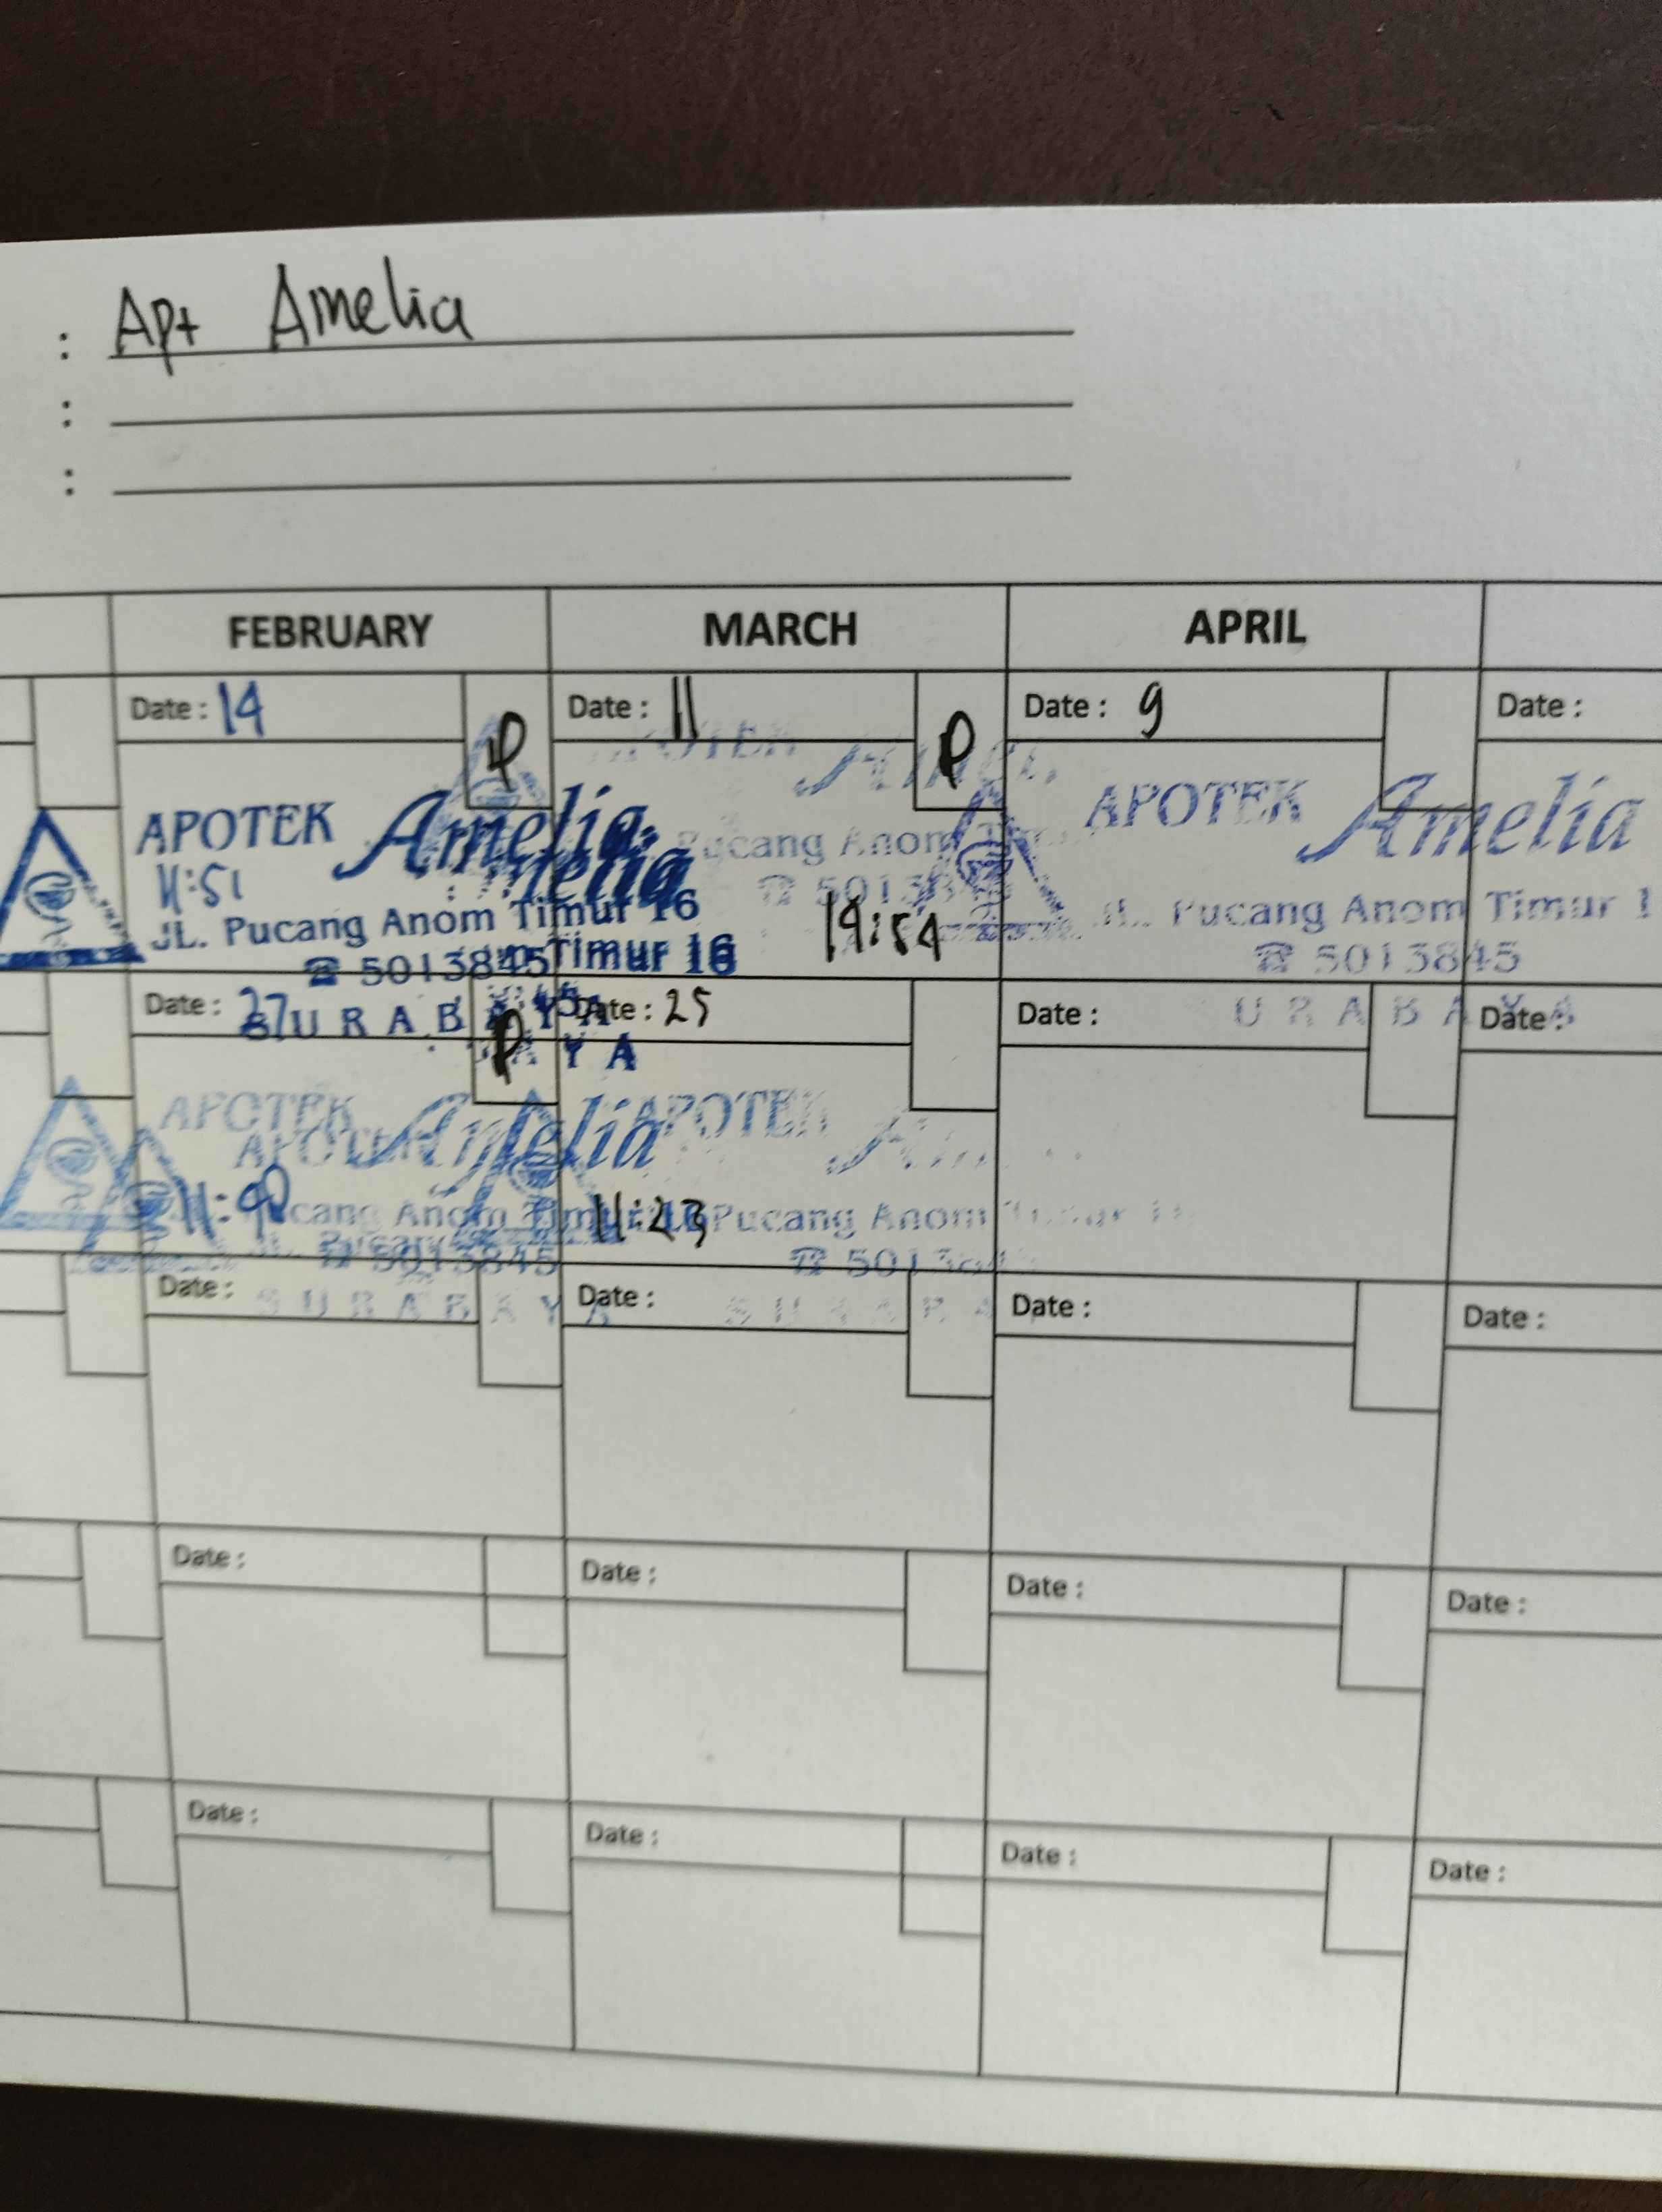 : Apt Amelia
:
:
FEBRUARY MARCH APRIL
Date : 14 P Date : 11 P Date : 9 Date :
APOTEK Amelia APOTEK APOTEK Amelia
11:51
JL. Pucang Anom Timur 16 Pucang Anom 19:54 Pucang Anom Timur 1
☎ 5013845 Timur 16 ☎ 5013845
Date : 27 SURABAYA P Date : 25 Date : URABAYA Date :
YA
APOTEK Amelia APOTEK
APOTEK
Anom Timur 16 11:23 Pucang Anom
☎ 5013845 ☎ 501
Date : SURABAYA Date : SURABA Date : Date :
Date : Date : Date : Date :
Date : Date : Date : Date :